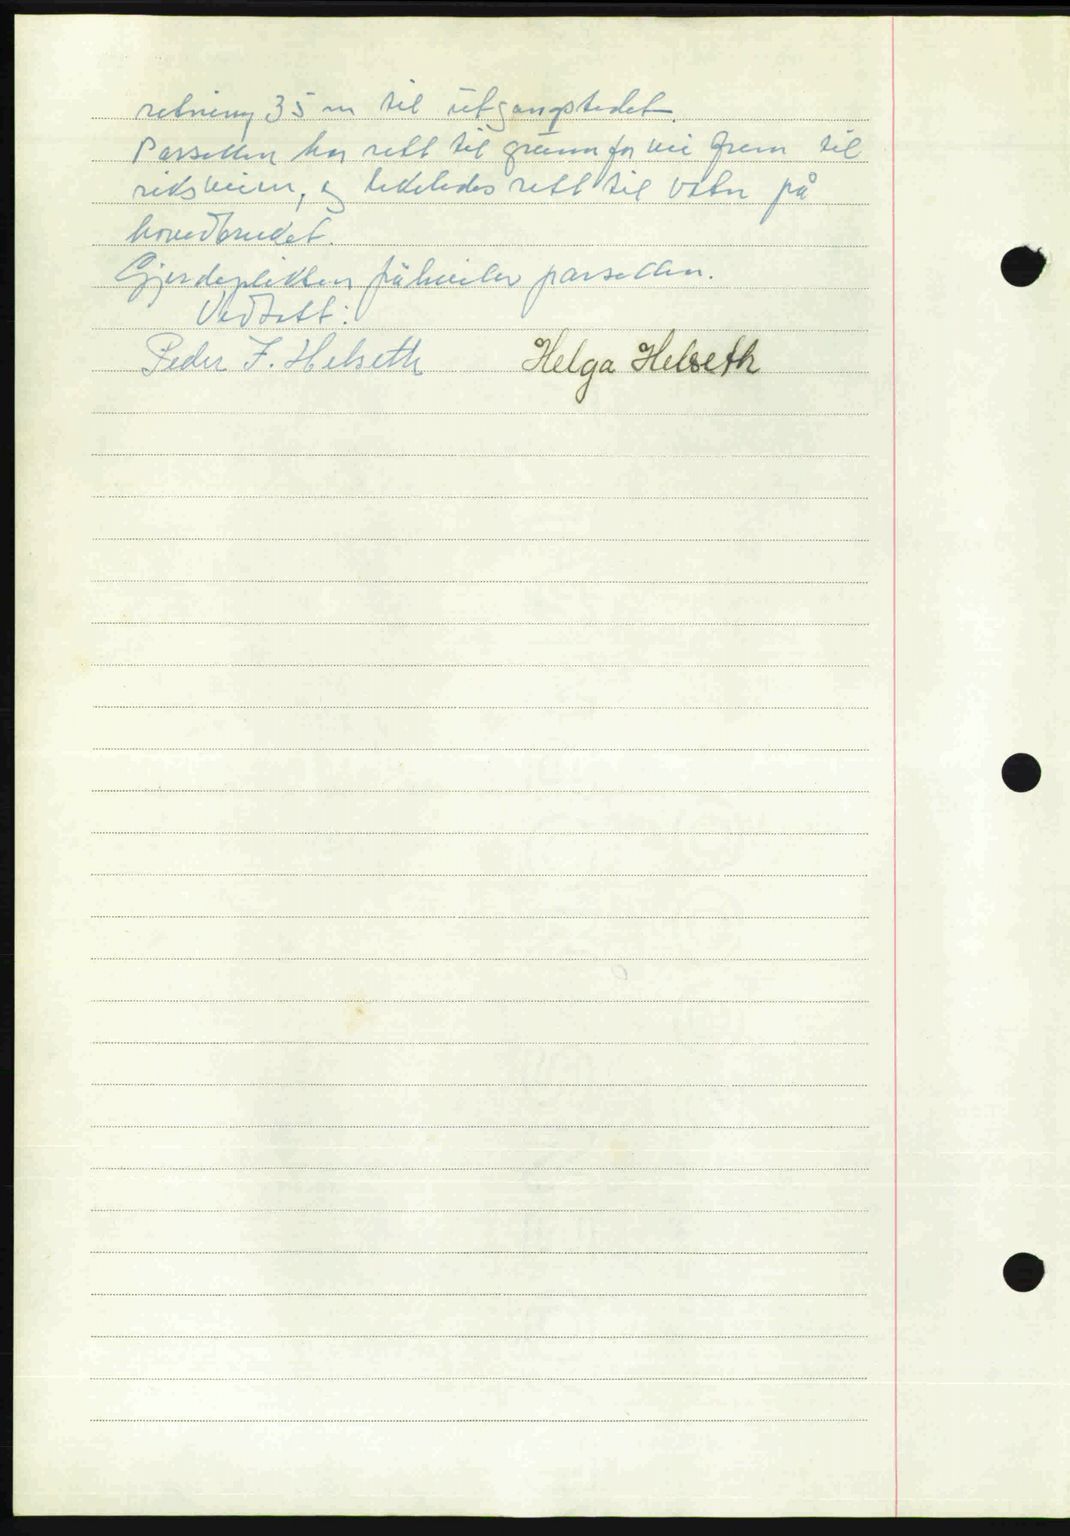 retning 35 m til utgangstedet.
Parsellen har rett til grunn for vei frem til
riksveien, og likeledes rett til vatn på
hovedbruket.
Gjerdeplikten påhviler parsellen.
Vedtatt:
Peder F. Helseth Helga Helseth